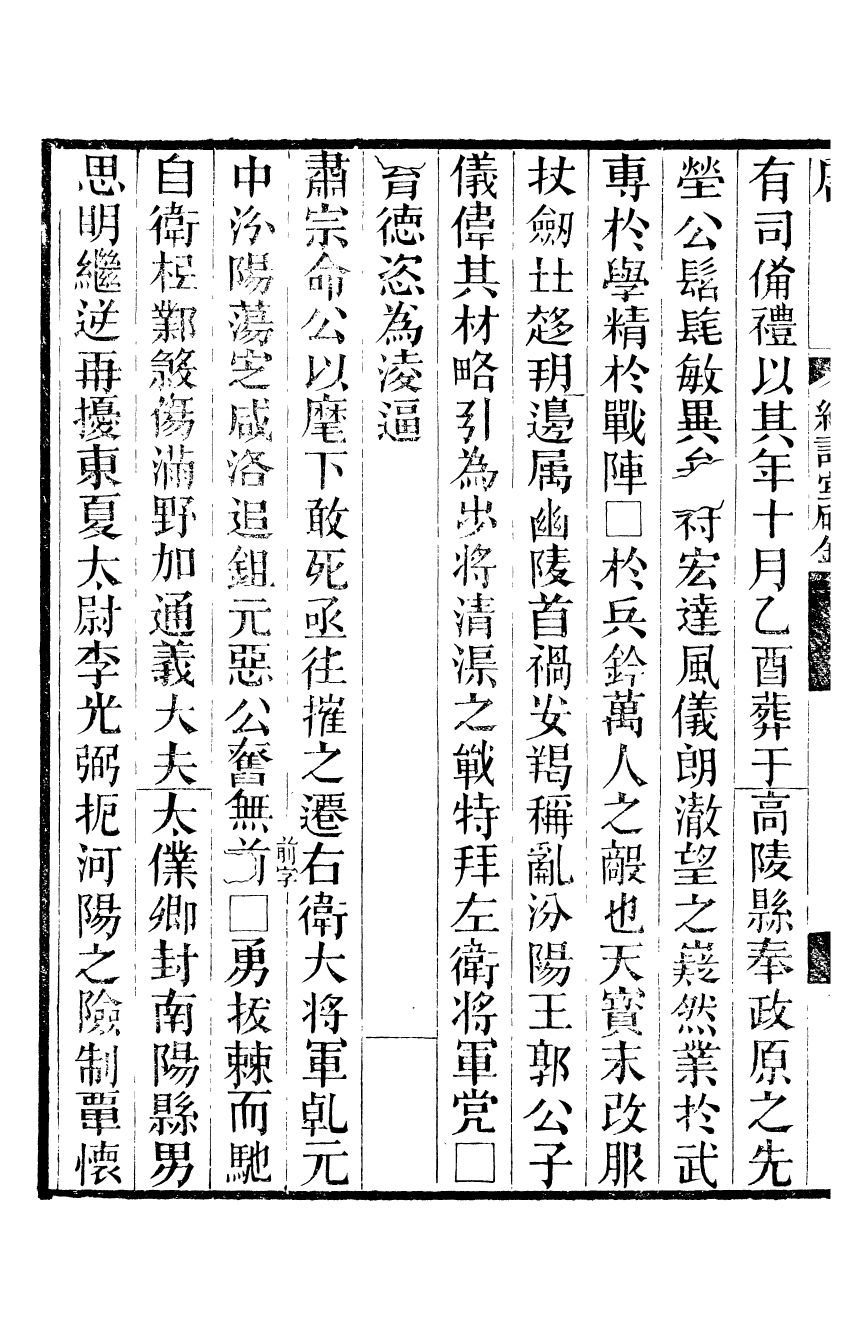 有司備禮以其年十月乙酉葬于高陵縣奉政原之先
塋公髫髦敏異 宏達風儀朗澈望之嶷然業於武
専於學精於戰陣□於兵鈐萬人之敵也天寶末改服
杖劒仕趍玥邊属幽陵首禍安羯稱亂汾陽王郭公子
儀偉其材略引為步将清渠之戰特拜左衛将軍党□
育德恣為淩逼
肅宗命公以麾下敢死亟往摧之遷右衛大将軍乹元
中汾陽蕩定咸洛追鉏元惡公奮無前前字□勇拔棘而馳
自衛柽鄴煞傷滿野加通義大夫太僕卿封南陽縣男
思明繼逆再擾東夏太尉李光弼扼河陽之險制覃懷